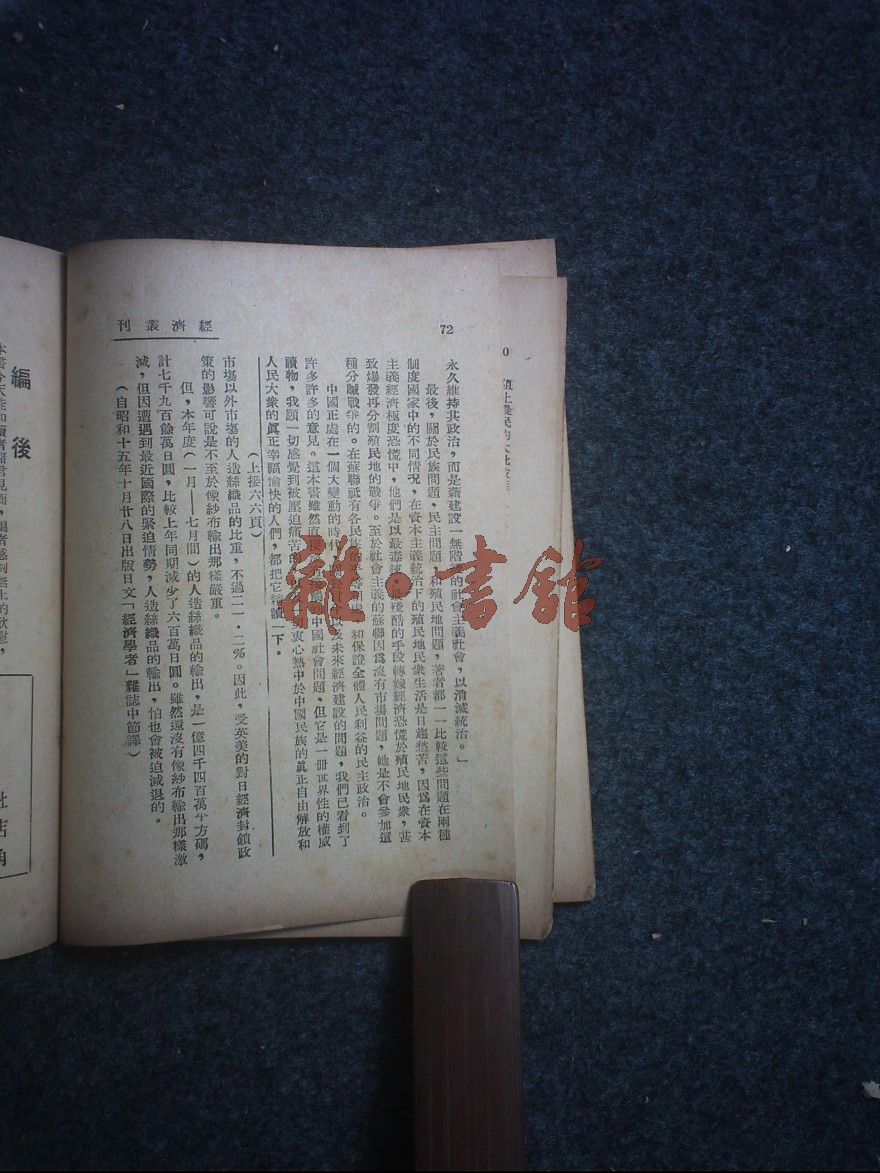 72
經濟叢刊
永久維持其政治，而是藉建設一無階級的社會主義社會，以消滅統治。」
最後，關於民族問題，民主問題，和殖民地問題，著者都一一比較這些問題在兩種
制度國家中的不同情況，在資本主義統治下的殖民地民衆生活是日趨愁苦，因爲在資本
主義經濟極度恐慌中，他們是以最毒辣最殘酷的手段轉嫁經濟恐慌於殖民地民衆，甚
致爆發再分割殖民地的戰爭。至於社會主義的蘇聯因爲沒有市場問題，她是不會參加這
種分贓戰爭的。在蘇聯祗有各民族的和保證全體人民利益的民主政治。
中國正處在一個大變動的時代以及未來經濟建設的問題，我們已看到了
許多許多的意見。這本書雖然直接中國社會問題，但它是一冊世界性的權威
讀物，我願一切感覺到被壓迫痛苦的衷心熱中於中國民族的眞正自由解放和
人民大衆的眞正幸福愉快的人們，都把它精讀一下。
（上接六六頁）
市場以外市場的人造絲織品的比重，不過二一・二％。因此，受英美的對日經濟封鎖政
策的影響可說是不至於像紗布輸出那樣嚴重。
但，本年度（一月——七月間）的人造絲織品的輸出，是一億四千四百萬平方碼，
計七千九百餘萬日圓，比較上年同期減少了六百萬日圓。雖然還沒有像紗布輸出那樣激
減，但因遭遇到最近國際的緊迫情勢，人造絲織品的輸出，怕也會被迫減退的。
（自昭和十五年十月廿八日出版日文「經濟學者」雜誌中節譯）
編後
雜·書館